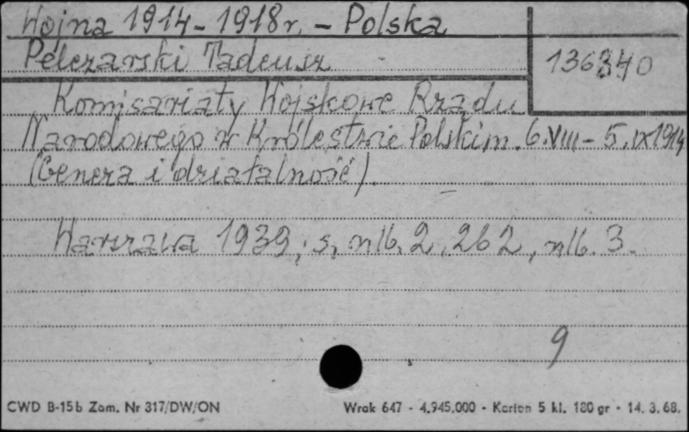 Wojna 1914-1918 r. - Polska
Pełczarski Tadeusz
136340
Komisariaty Wojskowe Rządu
Narodowego w Królestwie Polskim. 6.VIII - 5.IX 1914
(Geneza i działalność)
Warszawa 1939, s. nlb. 2, 262, nlb. 3.
9
CWD B-15b Zam. Nr 317/DW/ON
Wrak 647 - 4.945.000 - Karton 5 kl. 180 gr - 14. 3. 68.